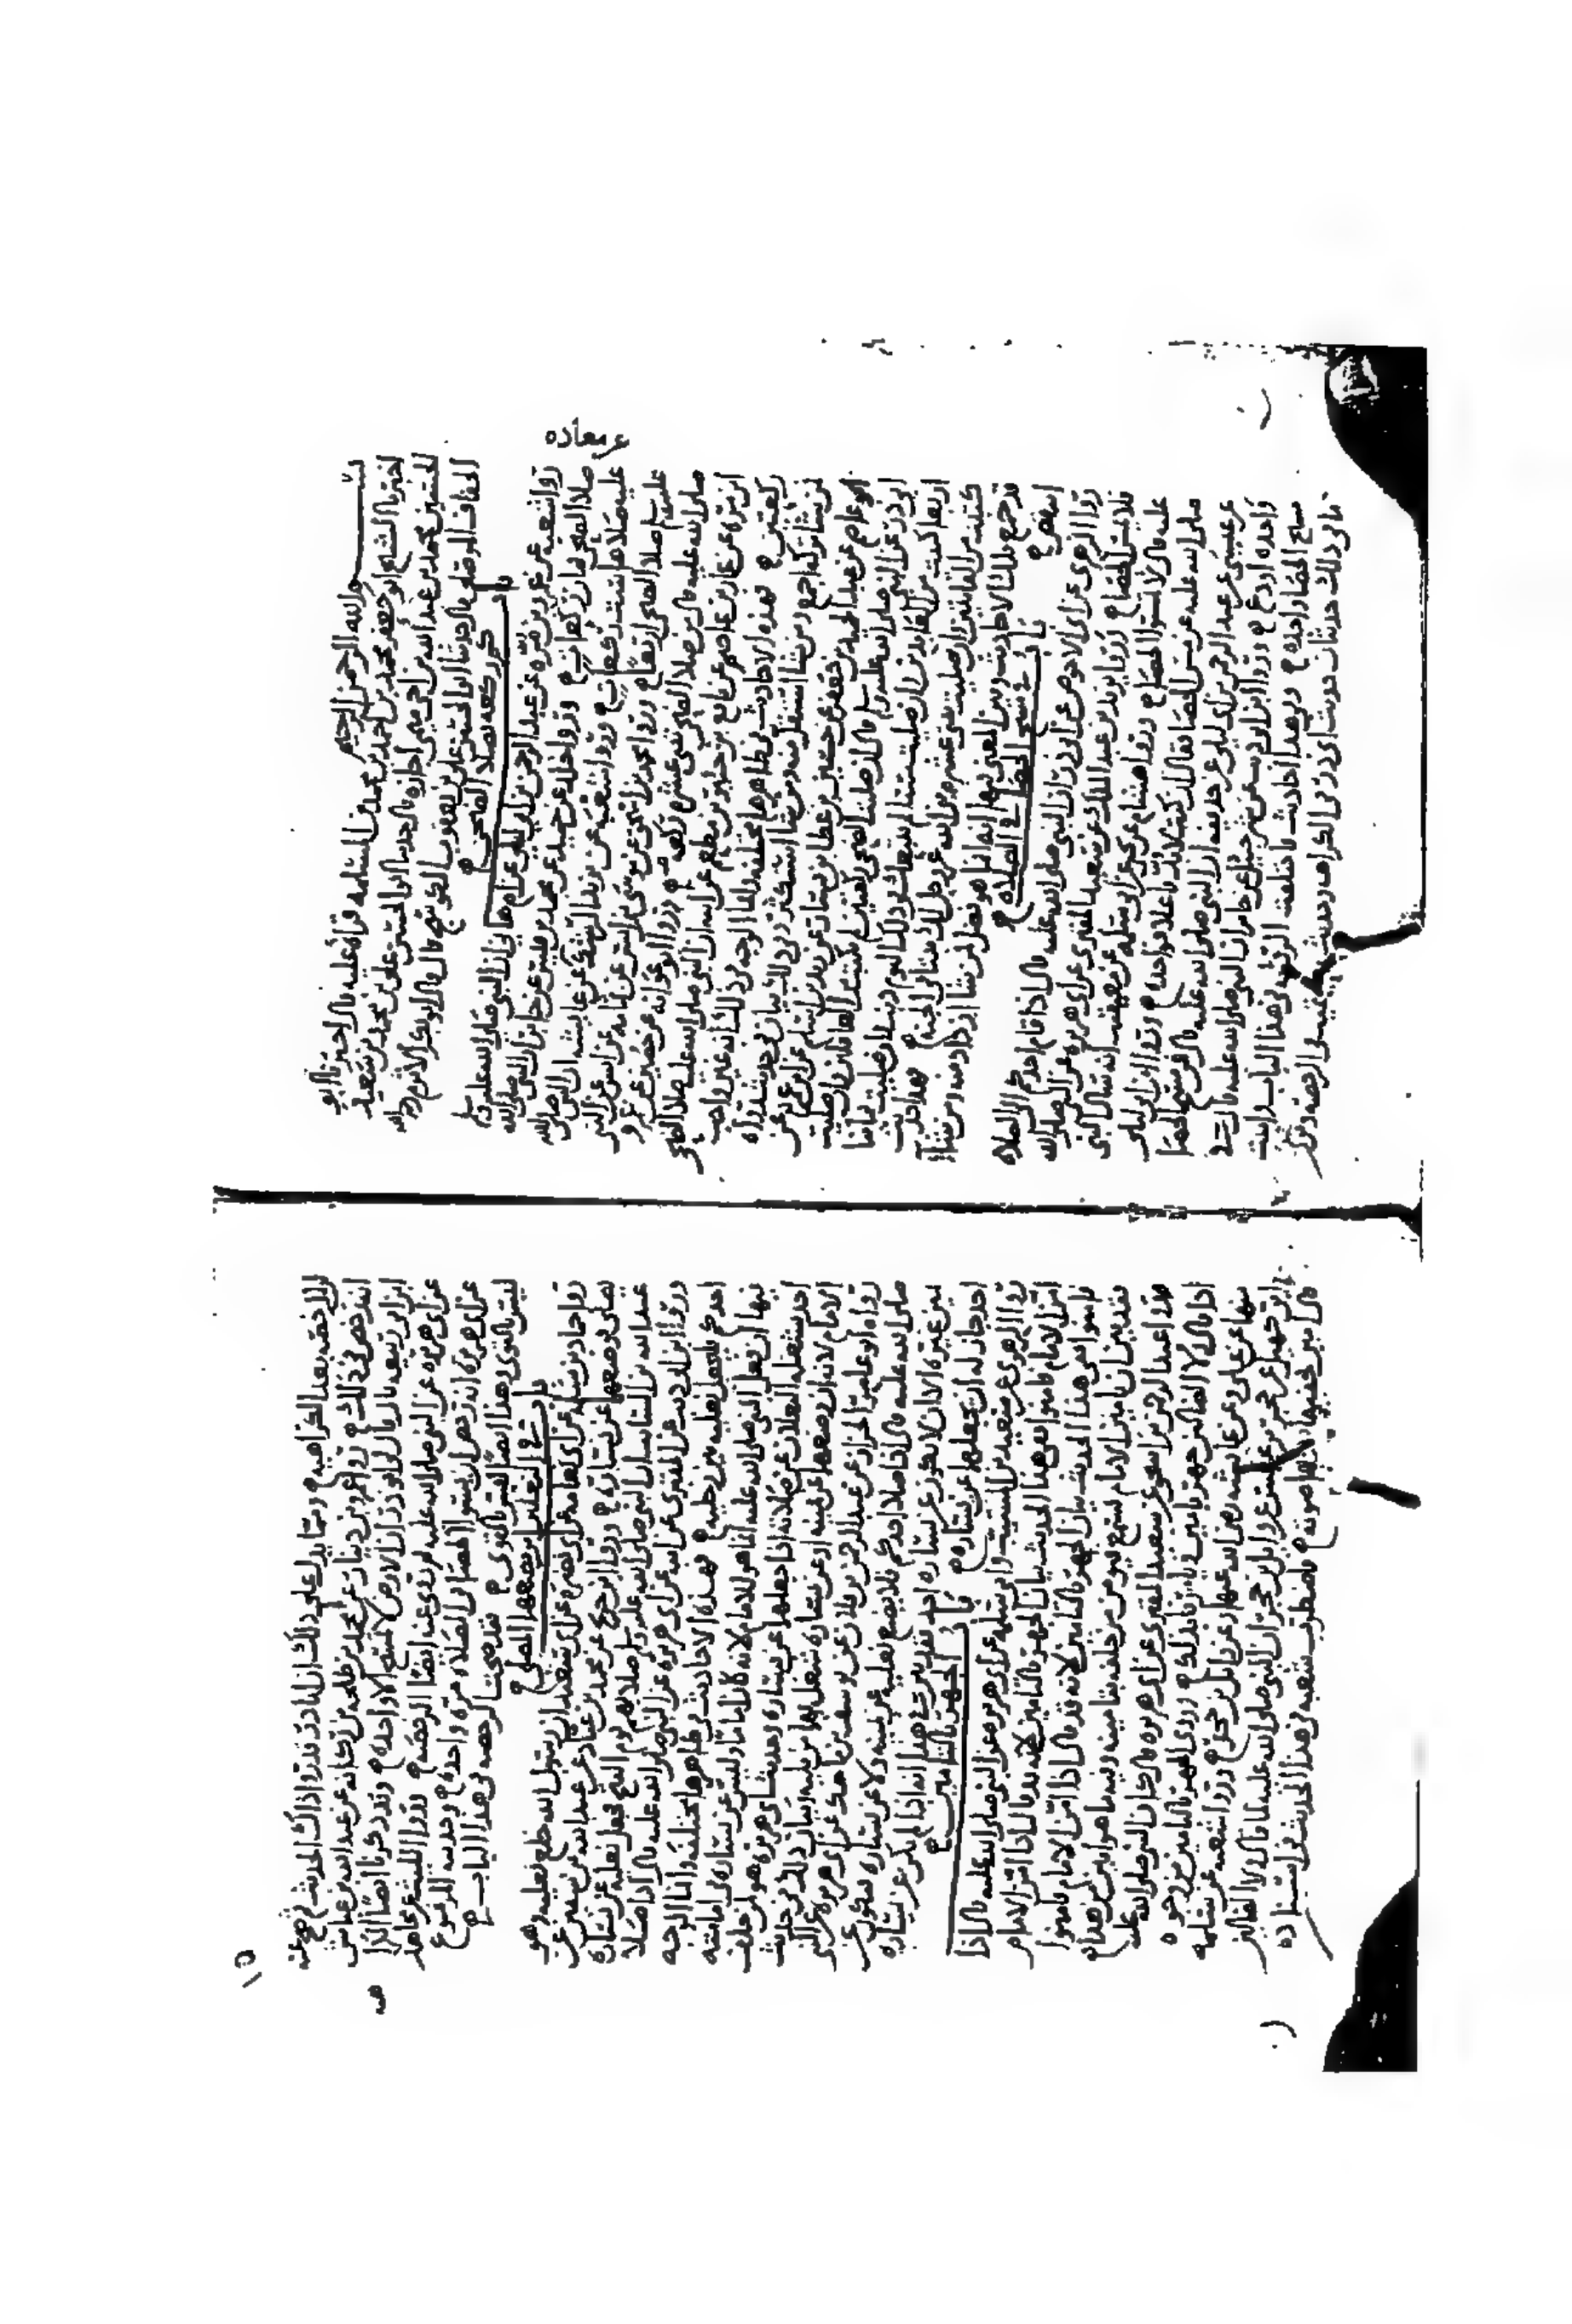 بسم الله الرحمن الرحيم
اخبرنا الشيخ ابو جعفر محمد بن احمد بن محمد بن المسلمه قراه عليه قال اخبرنا ابو
الحسين محمد بن عبد الله بن اخي ميمي اجازه قال حدثنا ابو الحسين علي بن محمد بن سعيد
الخفاف الموصلي قال حدثنا ابو الحسن علي بن يعقوب الكوسج قال قال ابو بكر الاثرم رحمه الله
باب كم ركعه صلاة الضحى
روى شعبه عن عمرو بن مره عن عبد الرحمن بن ابي ليلى عن ام هاني ان النبي صلى الله عليه وسلم
صلا الضحى ثمان ركعات وروى خالد عن حميد عن محمد بن قيس عن جابر ان النبي صلى الله
عليه صلاها ست ركعات وروى شعبه عن يزيد الرشك عن معاذه عن عايشه ان النبي صلى الله
عليه وسلم صلا الضحى اربعا وروى محمد بن اسحق عن موسى بن انس عن ثمامه عن انس عن النبي
صلى الله عليه قال من صلا الضحى ثنتي عشره ركعه وروى ابو عوانه عن حصين عن عمرو
ابن مره عن عمار بن عاصم عن نافع بن جبير بن مطعم عن ابيه ان النبي صلى الله عليه صلا الضحى
ركعتين فهذه الاحاديث في ظاهرها مختلفه وانما الوجه في ذلك انه غير واجب
من شا تركه اجمع ومن شا استقل منه ومن شا استكثر وفي ذلك بيان في حديث رواه
ابو عاصم عن عبد الحميد بن جعفر عن حسين بن عطا بن يسار عن زيد بن اسلم عن ابن عمر عن
ابي ذر عن النبي صلى الله عليه وسلم قال ان صليت الضحى ركعتين لم تكتب من الغافلين وان صليت
اربعا كنت من العابدين وان صليت ستا لم يتبعك في ذلك اليوم ذنب وان صليت ثمانيا
كتبت من القانتين وان صليت ثنتي عشره بنى الله عز وجل لك بيتا في الجنه فهذا حديث
قد جمع تلك الاحاديث وبين المعنى فيها انه انما هو فضل من شا ازداد منه ومن شا
انتقص
باب في مس الحصا في الصلاه
روى الزهري عن ابي الاحوص عن ابي ذر ان النبي صلى الله عليه قال اذا قام احدكم الى الصلاه
فلا يمس الحصا وروى يزيد بن عبد الملك عن سعيد المقبري عن ابي هريره عن النبي صلى الله
عليه قال لا تمسوا الحصا وروى هشام عن يحيى عن ابي سلمه عن معيقيب انه سال النبي
صلى الله عليه عن مس الحصا فقال ان كنت لا بد فاعلا فواحده وروى ابن ابي ليلى
عن عيسى عن عبد الرحمن بن ابي ليلى عن حذيفه ان النبي صلى الله عليه قال في مس الحصا
واحده او دع وروى ابن ابي ذيب عن شرحبيل عن جابر ان النبي صلى الله عليه قال في
مسح الحصا واحده فهذه احاديث فاختلفت الروايه في هذا الباب
في ذلك حديثان حديث ابي ذر في الكراهه وحديث معيقيب في الرخصه
الرخصه بعد الكراهيه ومما يدل على ذلك ان ابا ذر قد روى ذاك الحديث ثم رجع عنه
في ذلك روى عمرو بن دينار عن محمد بن طلحه بن ركانه عن عبد الله بن عياش
ابن ابي ربيعه قال قال لي ابو ذر ان الارض لا تمسح الا واحده وقد ذكرنا ايضا
عن ابي هريره عن النبي صلى الله عليه ثم روى عنه ايضا الرخصه وروى الليث عن مجاهد
عن ابي هريره انه رخص ان يسوا الحصا في الصلاه مره واحده وحديثه المرفوع
ليس بالقوي وهذا ايضا ليس بالقوي فقد صحت الرخصه في هذا الباب
باب في النعلين اين يضعهما المصلي
روى حماد بن سلمه عن ابي نعامه عن ابي نضره عن ابي سعيد ان رسول الله خلع نعليه وهو
يصلي فوضعهما عن يساره وروى ابن جريج عن محمد بن عباد عن عبد الله بن سفين عن
عبد الله بن السايب ان النبي صلى الله عليه وسلم صلا بهم يوم الفتح فجعل نعليه عن يساره
وروى ابن ابي ذيب عن المقبري عن ابيه عن ابي هريره عن النبي صلى الله عليه قال اذا صلا
احدكم فليجعل نعليه بين رجليه فهذه الاحاديث في ظاهرها مختلفه وانما الوجه
فيها ان فعل النبي صلى الله عليه انما هو للامام لانه كان اماما وليس عن يساره في امامته
احد يشغله النعلان عن صلاته اذا جعلهما عن يساره وحديث ابي هريره هو لمن خلف
الامام لانه ان وضعهما عن يمينه او عن يساره شغل بهما من يليه وبيان ذلك في حديث
رواه ابو عامر الخزاز عن عبد الرحمن بن قيس عن يوسف بن ماهك عن ابي هريره عن النبي
صلى الله عليه قال اذا صلا احدكم فلا يضع نعليه عن يمينه ولا عن يساره فتكون عن
يمين غيره الا ان لا يكون عن يساره احد فقد بين في هذا انه اذا لم يكن عن يساره
احد جاز له ان يجعلهما عن يساره
باب الجهر بالتامين
روى الزهري عن سعيد بن المسيب وابي سلمه عن ابي هريره عن النبي صلى الله عليه قال اذا
امن الامام فامنوا ففي هذا الحديث بيان الجهر بالتامين لانه قد قال اذا امن الامام
فامنوا
فقد بين ان تامين الامام يسمع
وروى عبد الرحمن بن اسحق عن سعيد المقبري عن ابي هريره قال كان النبي صلى الله عليه
اذا قال ولا الضالين جهر بامين وروي الجهر بالتامين من وجوه
منها عن علي وعن عايشه رضي الله عنها وعن وايل بن حجر وروى شعبه عن سلمه
ابن كهيل عن حجر بن عنبس عن وايل بن حجر ان النبي صلى الله عليه لما قال ولا الضالين
قال امين خفض بها صوته فاضطرب شعبه في هذا الحديث في اسناده